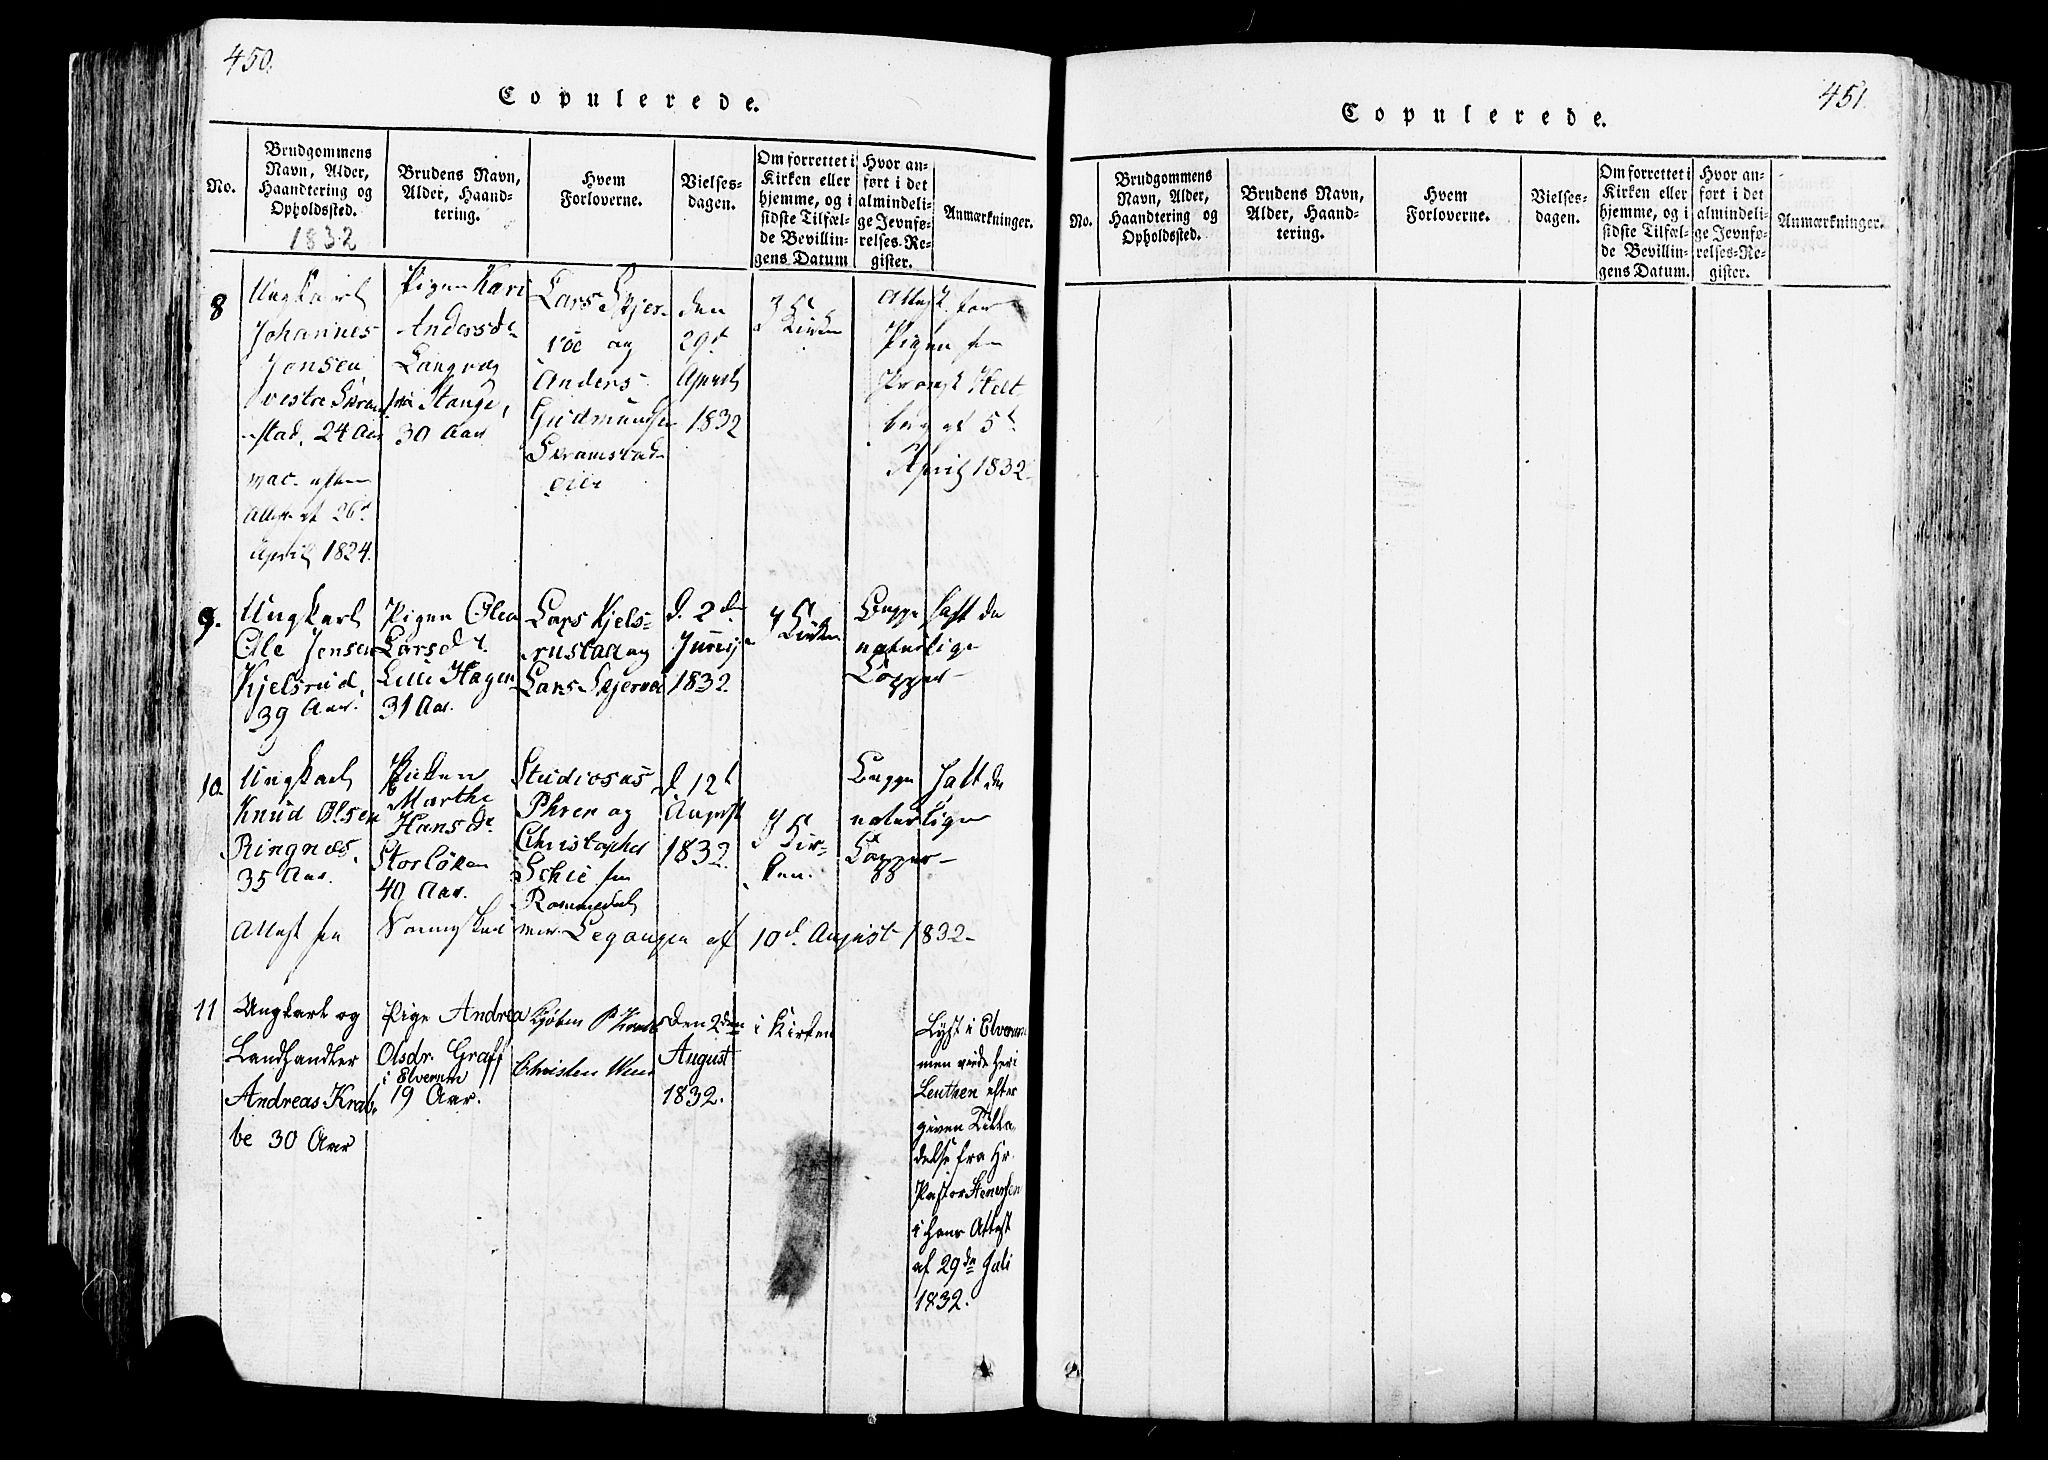 450.
Copulerede.
No.
Brudgommens
Navn, Alder,
Haandtering og
Opholdssted.
1832
Brudens Navn,
Alder, Haand-
tering.
Hvem
Forloverne.
Vielses-
dagen.
Om forrettet i
Kirken eller
hjemme, og i
sidste Tilfæl-
de Bevillin-
gens Datum
Hvor an-
ført i det
almindeli-
ge Jevnfø-
relses-Re-
gister.
Anmærkninger.
8
Ungkarl
Johannes
Jensen
vestre
stad, 24 Aar
vac. efter
Attest af 26d
April 1824.
Pigen Kari
Andersd
Langvæg
fra Stange,
30 Aar
Lars Skjer-
røe og
Anders
Gudmundsen
Skramstad-
eier
den
29d
April
1832
I Kirken
Attest for
Pigen fra
Provst Helt
berg af 5d
April 1832
9.
Ungkarl
Ole Jensen
Kjelsrud,
39 Aar.
Pigen Olea
Larsdr.
Lille Hagen
31 Aar.
Lars Kjels-
rustad og
Lars Skjerrøe
d. 2den
Junij
1832.
I Kirken
Begge haft de
naturlige
Kopper
10.
Ungkarl
Knud Olsen
Ringnæs,
35 Aar.
Pigen
Marthe
Hansdr
Storløken
40 Aar.
Studiosus
Phren og
Christopher
Schie fra
Rommedal
d. 12t
August
1832.
I Kir-
ken.
Begge haft de
naturlige
Kopper
Attest fra af 10d. August 1832
11
Ungkarl og
Landhandler
Andreas Krab-
be 30 Aar
Pige Andrea
Olsdr. Graff
i Elverum
19 Aar.
Christen
Den 2den
August
1832.
i Kirken
Lyst i Elverum
men viede her i
Leuthen efter
given Tilla-
delse fra Hr.
Pastor Stenersen
i hans Attest
af 29de Juli
1832.
451.
Copulerede.
No.
Brudgommens
Navn, Alder,
Haandtering og
Opholdssted.
Brudens Navn,
Alder, Haand-
tering.
Hvem
Forloverne.
Vielses-
dagen.
Om forrettet i
Kirken eller
hjemme, og i
sidste Tilfæl-
de Bevillin-
gens Datum.
Hvor an-
ført i det
almindeli-
ge Jevnfø-
relses-Re-
gister.
Anmærkninger.